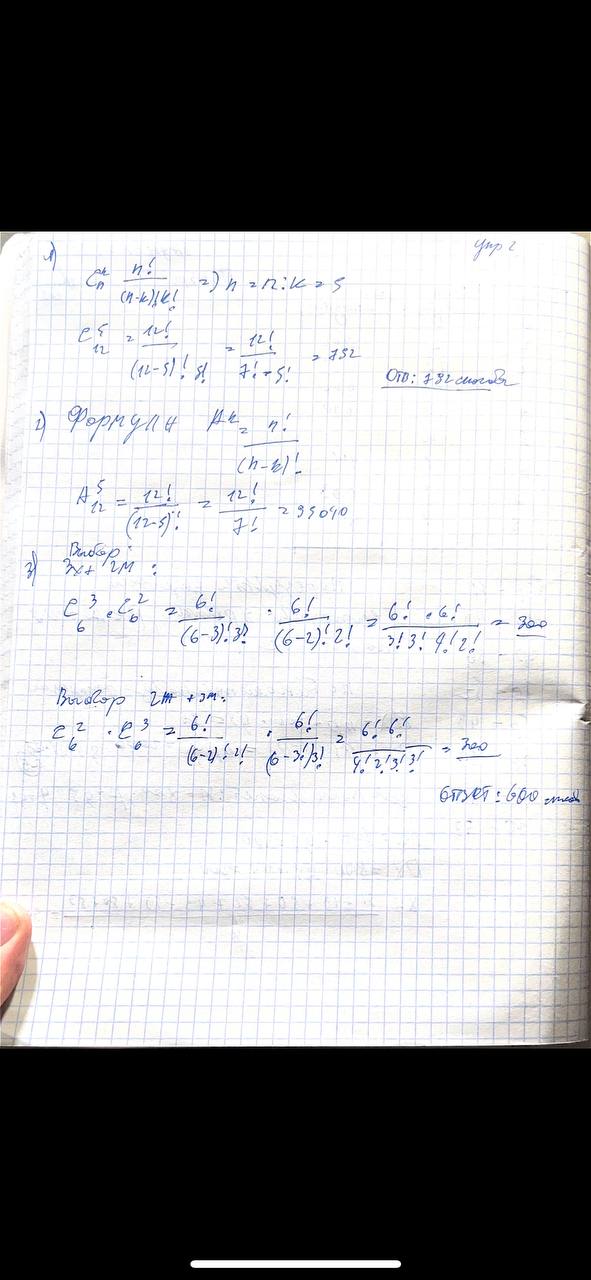 упр 2
1)
C_n^k n!/((n-k)!k!) => n = 12; k = 5
C_12^5 = 12!/((12-5)! 5!) = 12!/(7! · 5!) = 792
Отв: 792 способа
2) Формула A_n^k = n!/(n-k)!
A_12^5 = 12!/(12-5)! = 12!/7! = 95040
Выбор
3) 3ж+ 2М :
C_6^3 · C_6^2 = 6!/((6-3)!3!) · 6!/((6-2)!2!) = 6! · 6!/(3! 3! 4! 2!) = 300
Выбор 2ж + 3м:
C_6^2 · C_6^3 = 6!/((6-2)!2!) · 6!/((6-3!)3!) = 6! 6!/(4! 2! 3! 3!) = 300
Ответ: 600